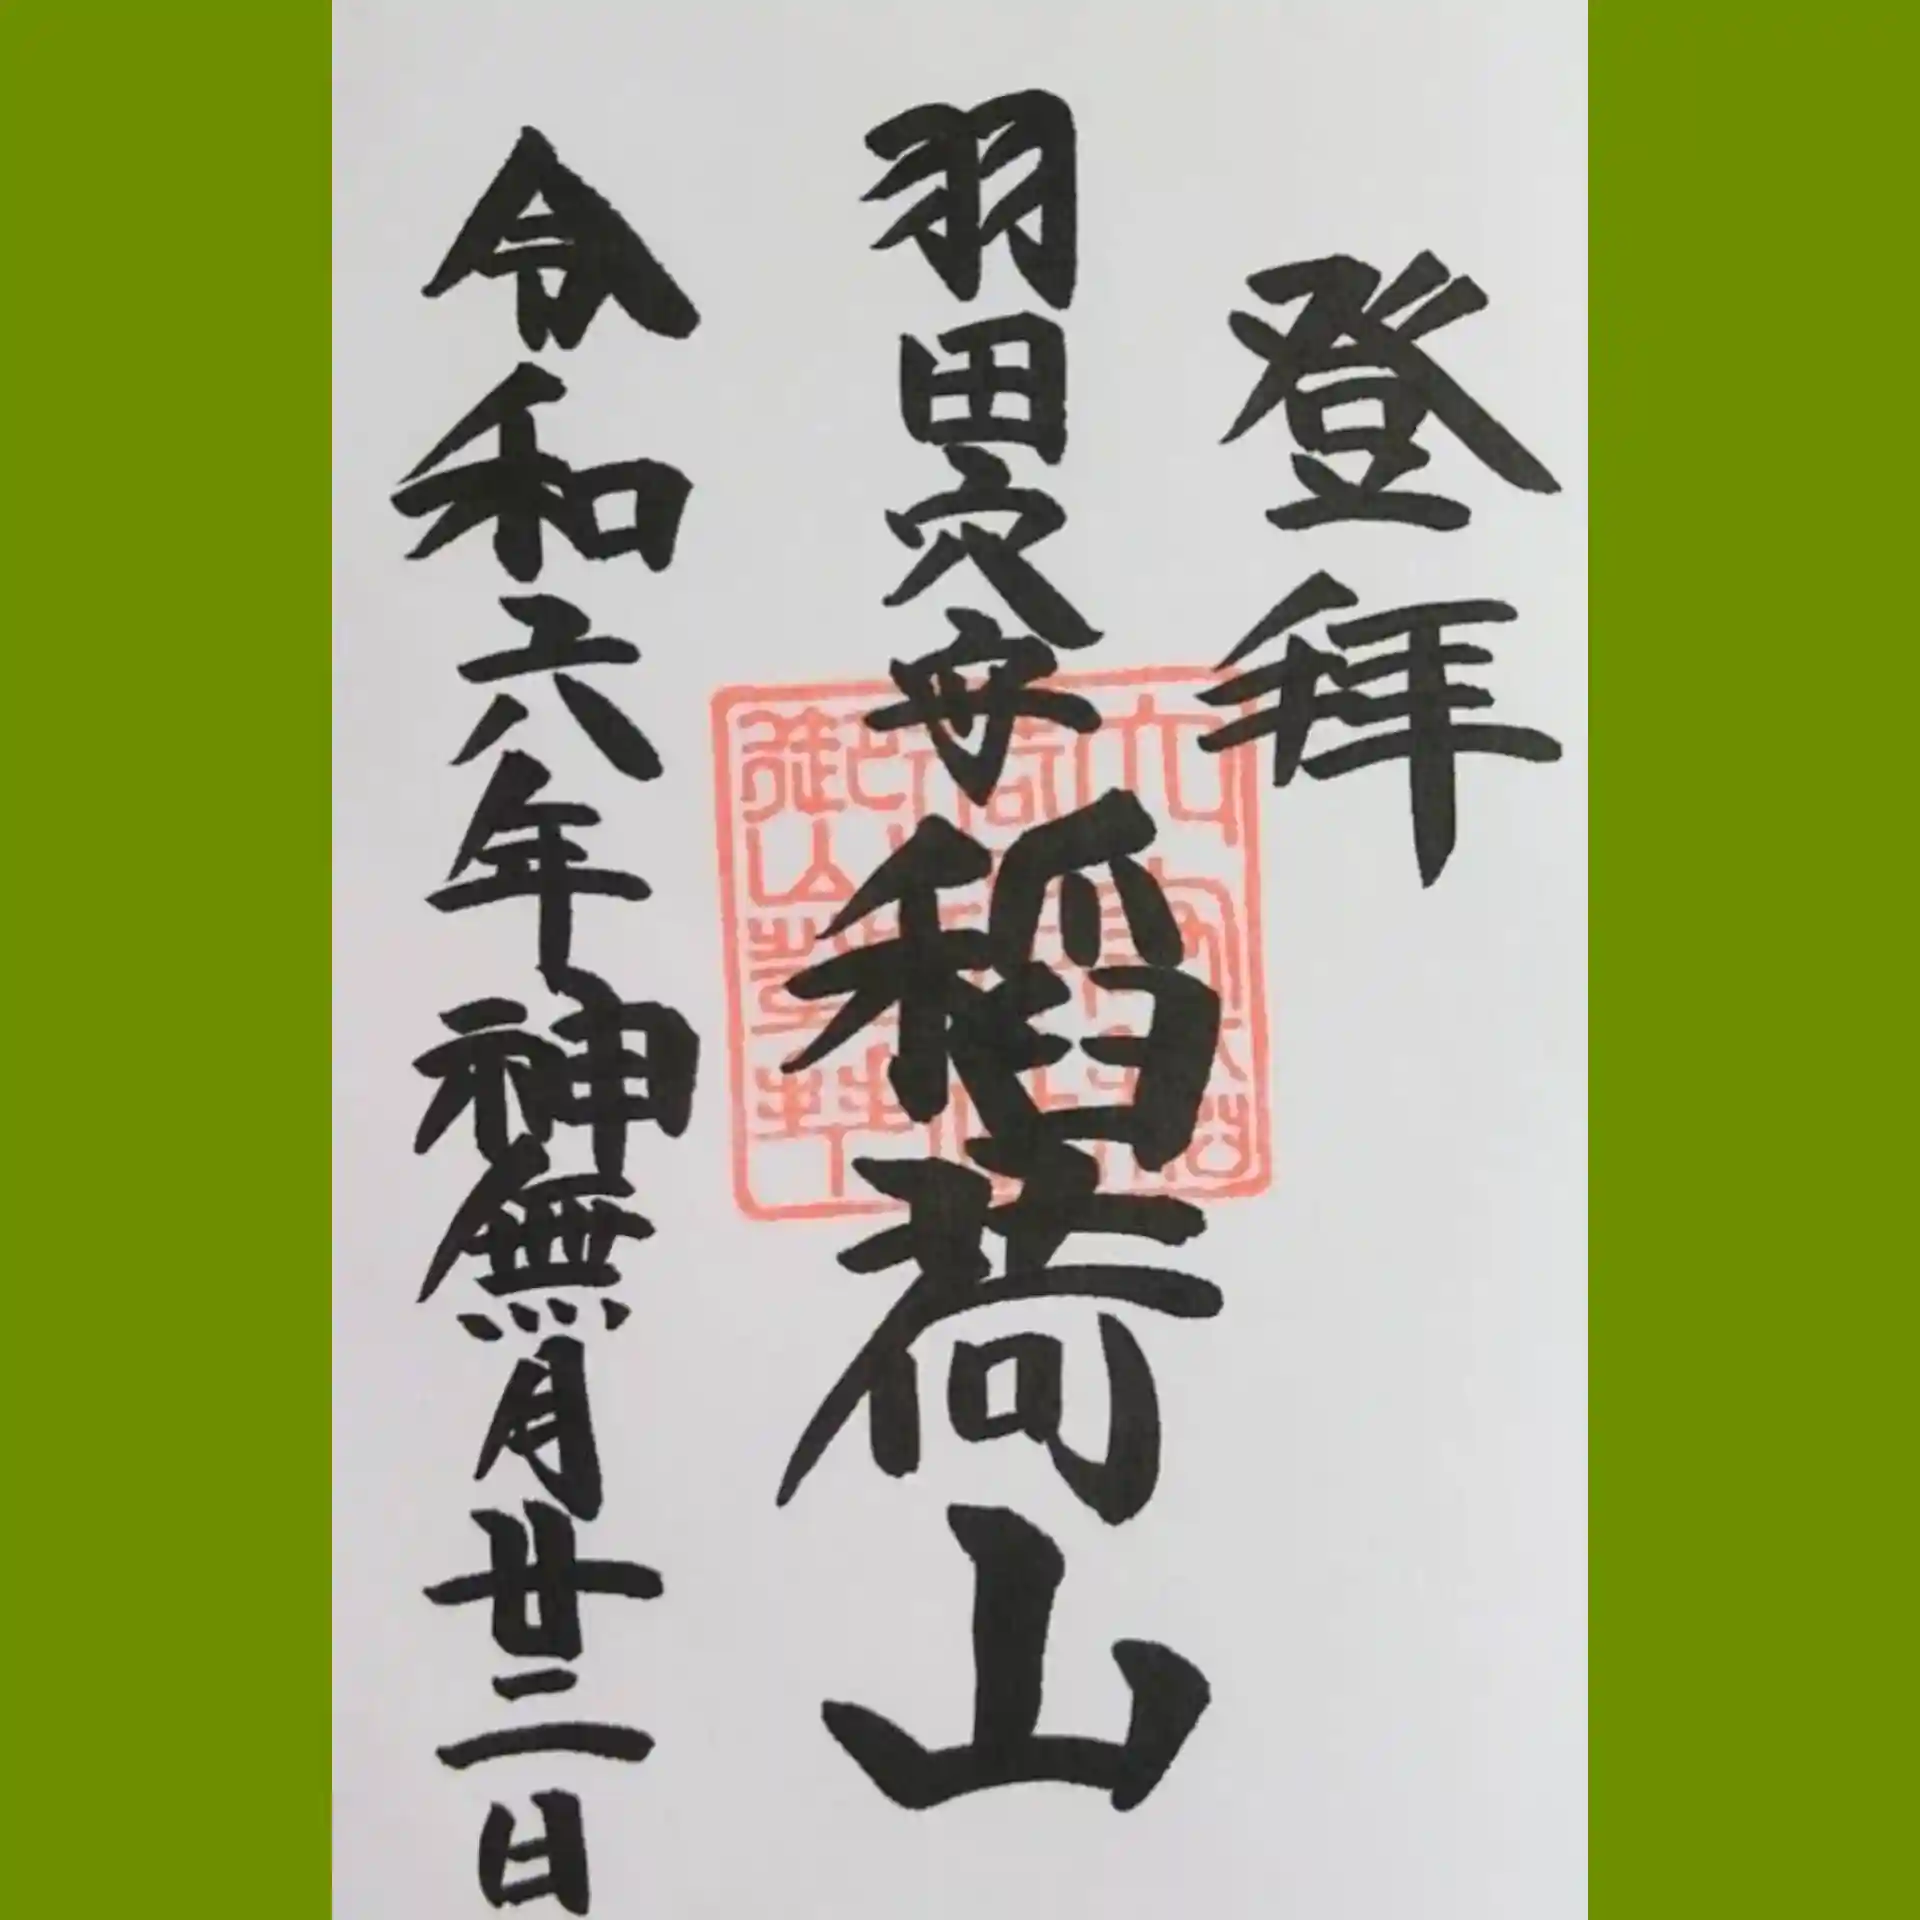 登拝
羽田穴守稲荷山
令和六年神無月廿二日